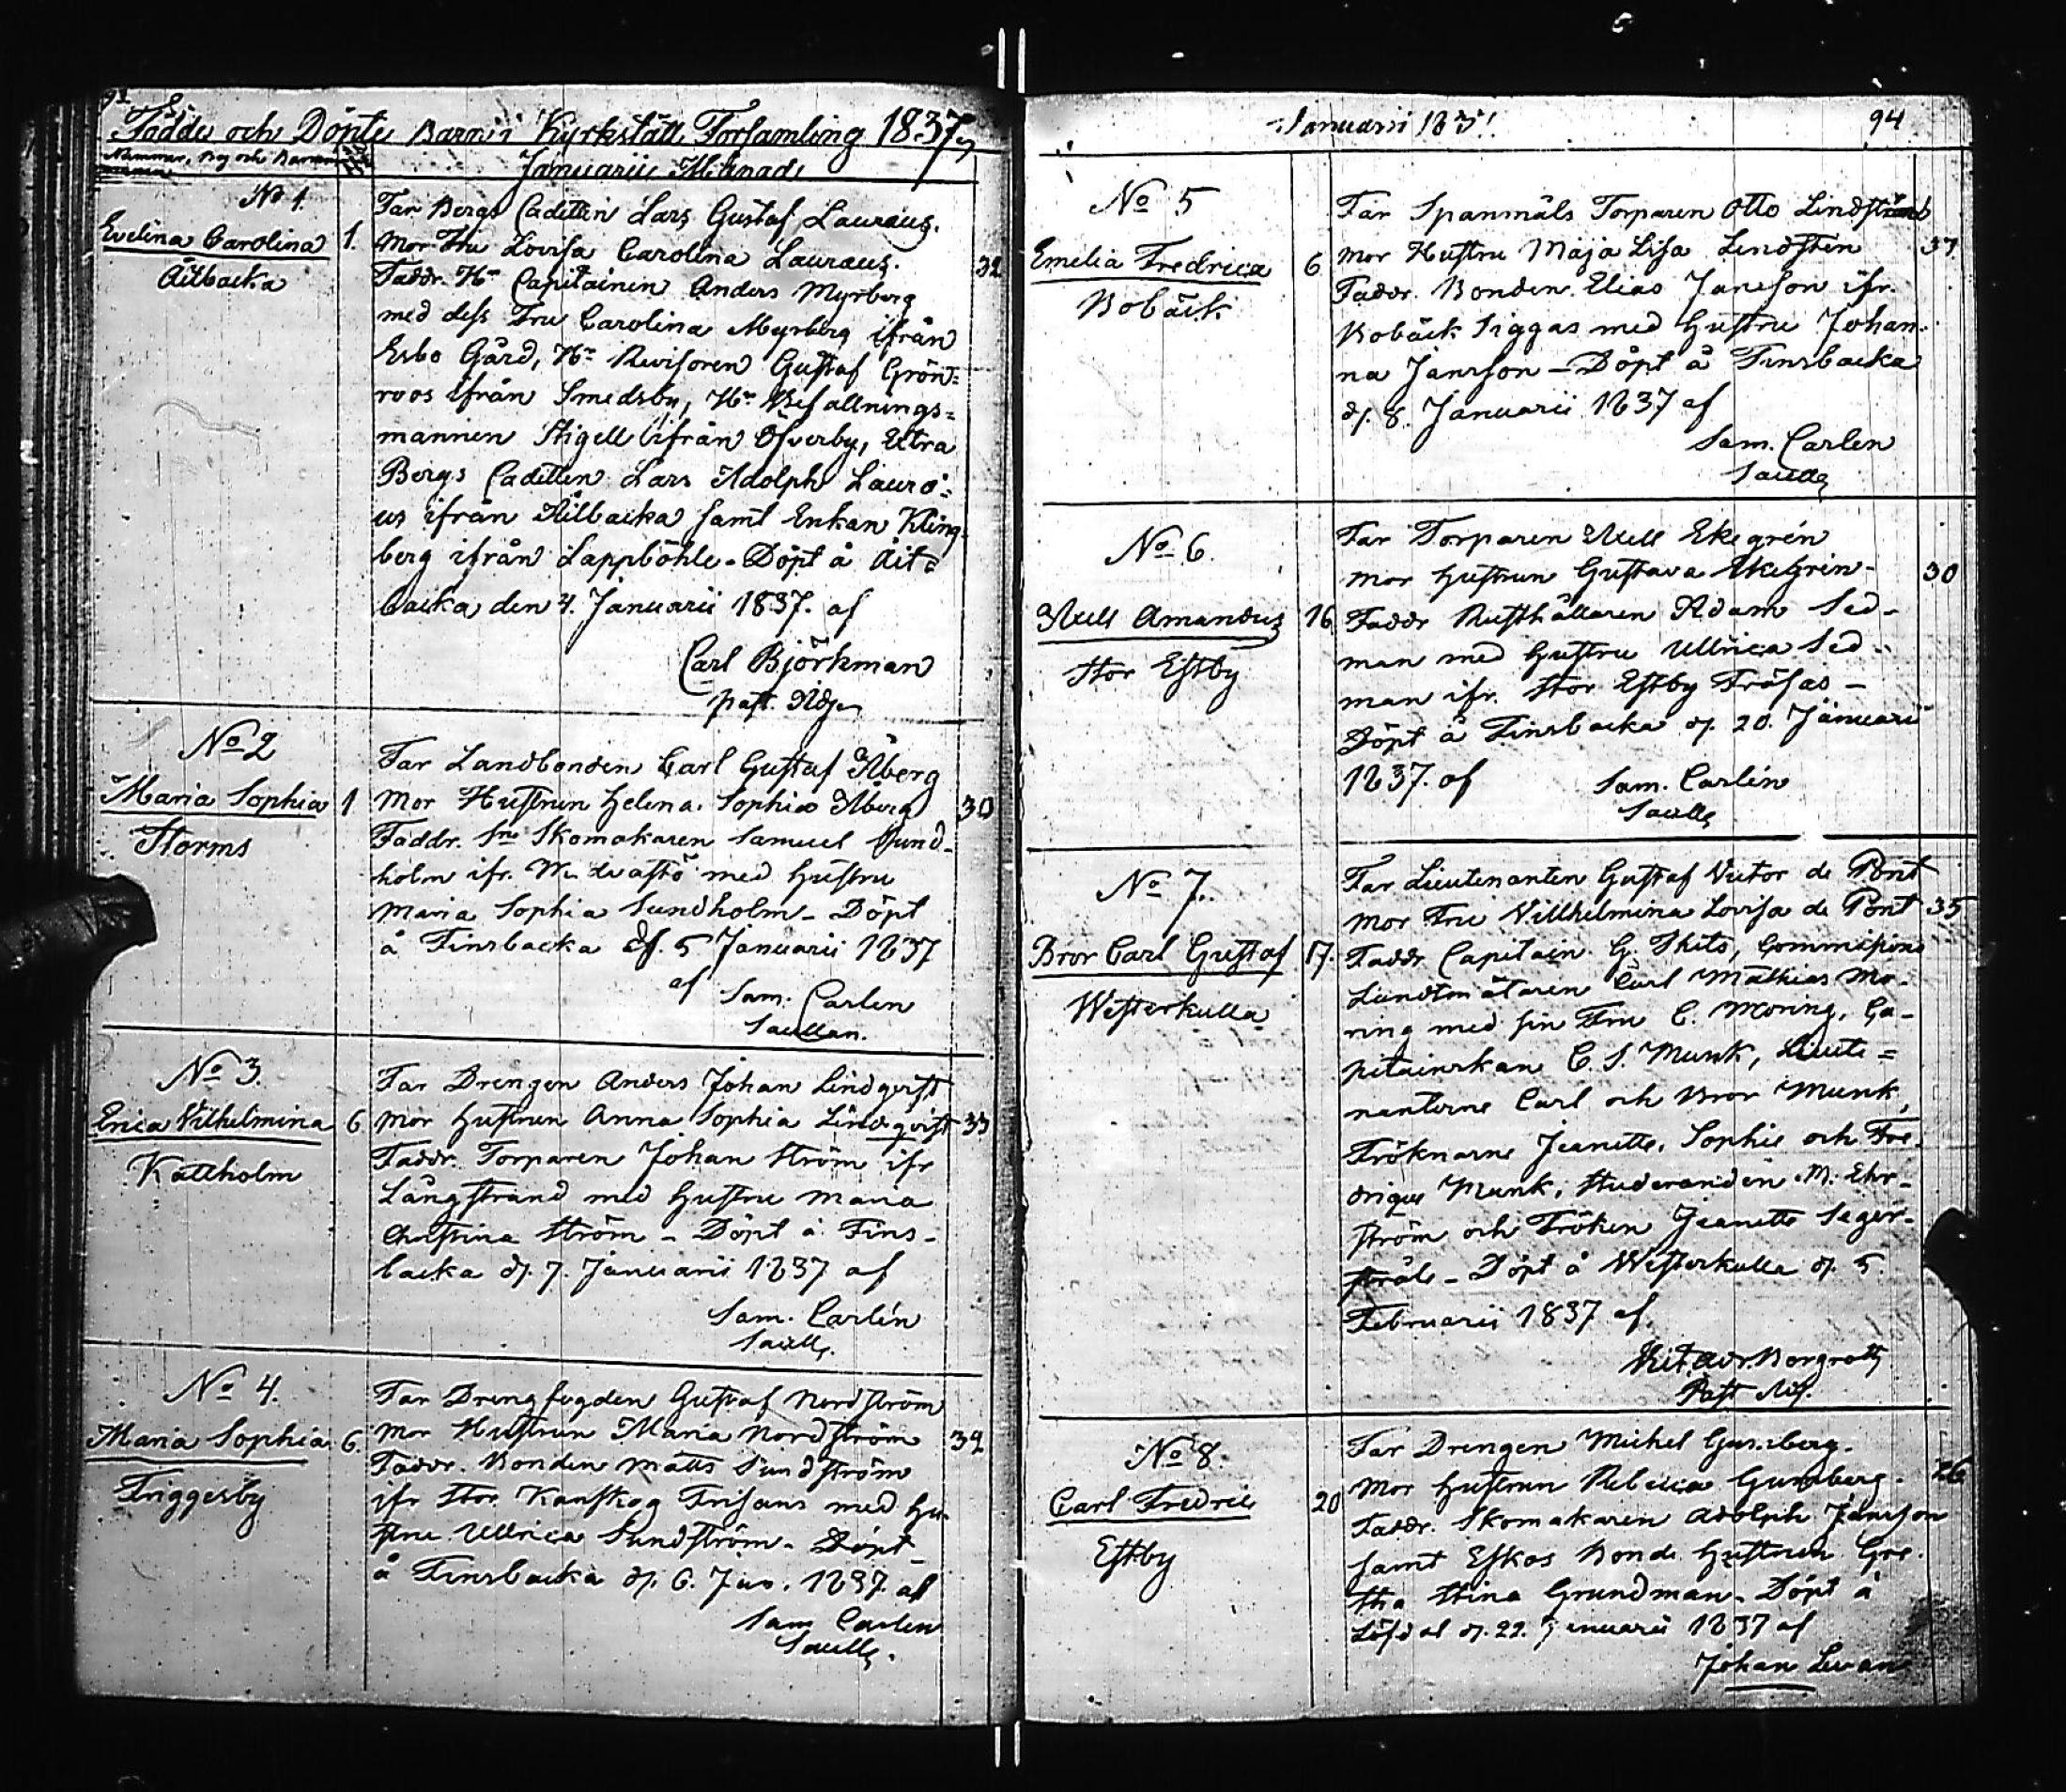 Födde och Döpte Barn i Kyrkslätt Församling 1837,
Nummer, By och Barnens
Januarii Månad
No 1.
Evelina Carolina
Åitbacka
1.
Far Bergs Cadetten Lars Gustaf Lauræus.
Mor Fru Lovisa Carolina Lauræus.
32
Faddr. Hr Capitainen Anders Myrberg
med dess Fru Carolina Myrberg ifrån
Esbo Gård, Hr Revisoren Gustaf Grön=
roos ifrån Smedsby, Hr Befallnings=
mannen Stigell ifrån Öfverby, Extra
Bergs Cadetten Lars Adolph Lauræ=
us ifrån Åitbacka samt Enkan Kling
berg ifrån Lappböhle - Döpt å Åit=
backa den 4. Januarii 1837. af
Carl Björkman
past. Adj.
No 2
Maria Sophia
Storms
1
Far Landbonden Carl Gustaf Åberg
Mor Hustrun Helena Sophia Åberg
30
Faddr. Skomakaren Samuel Sund-
holm ifr. med hustru
Maria Sophia Sundholm - Döpt
å Finsbacka d. 5 Januarii 1837
af Sam. Carlén
Sacellan.
No 3.
Erica Vilhelmina
Kattholm
6
Far Drengen Anders Johan Lindqvist
Mor hustrun Anna Sophia Lindqvist
33
Faddr. Torparen Johan Ström ifr
Långstrand med hustru Maria
Christina Ström - Döpt å Fins-
backa d. 7. Januarii 1837 af
Sam. Carlén
Sacell.
No 4.
Maria Sophia
Friggesby
6.
Far Drengfogden Gustaf Nordström
Mor Hustrun Maria Nordström
Faddr. Bonden Matts Sundström
ifr Stor Kanskog Frisans med hu-
stru Ullrica Sundström - Döpt
å Finsbacka d. 6. Jan. 1837 af
Sam Carlén
Sacell.
Januarii 1837.
94
No 5
Emelia Fredrica
Bobäck
6
Far Spanmåls Torparen Otto
Mor Hustru Maja Lisa Lindsten
37
Faddr. Bonden Elias Jansson ifr.
Bobäck Siggas med hustru Johan-
na Jansson - Döpt å Finsbacka
d. 8. Januarii 1837 af
Sam. Carlén
Sacell.
No 6.
Axell Amandus
Stor Estby
16
Far Torparen Axell Ekegrén
Mor hustrun Gustava Ekegrén -
30
Faddr Rusthållaren Adam Sed-
man med hustru Ullrica Sed-
man ifr. Stor Estby Fräsas -
Döpt å Finsbacka d. 20. Januarii
1837. af
Sam. Carlén
Sacell.
No 7.
Bror Carl Gustaf
Westerkulla
17.
Far Lieutenanten Gustaf Victor de Pont
Mor Fru Villhelmina Lovisa de Pont
35
Faddr Capitain G. Commissions
Landtmätaren Carl Mathias Mo-
ring med sin Fru C. Moring, Ca-
pitainskan C. S. Munk, Lieute=
nanterne Carl och Bror Munk,
Fröknarne Jeanette, Sophie och Fre-
drique Munk, Studeranden M. Ehr-
ström och Fröken Jeanette Seger-
stråle - Döpt å Westerkulla d. 5.
Februarii 1837 af
Past.
No 8.
Carl Fredric
Estby
20
Far Drengen Michel Gunsberg.
Mor hustrun Rebecca Gunsberg.
26
Faddr. Skomakaren Adolph Jansson
samt Eskas Bonde hustrun Gre-
tha Stina Grundman - Döpt å
Löfdal d. 22. Januarii 1837 af
Johan